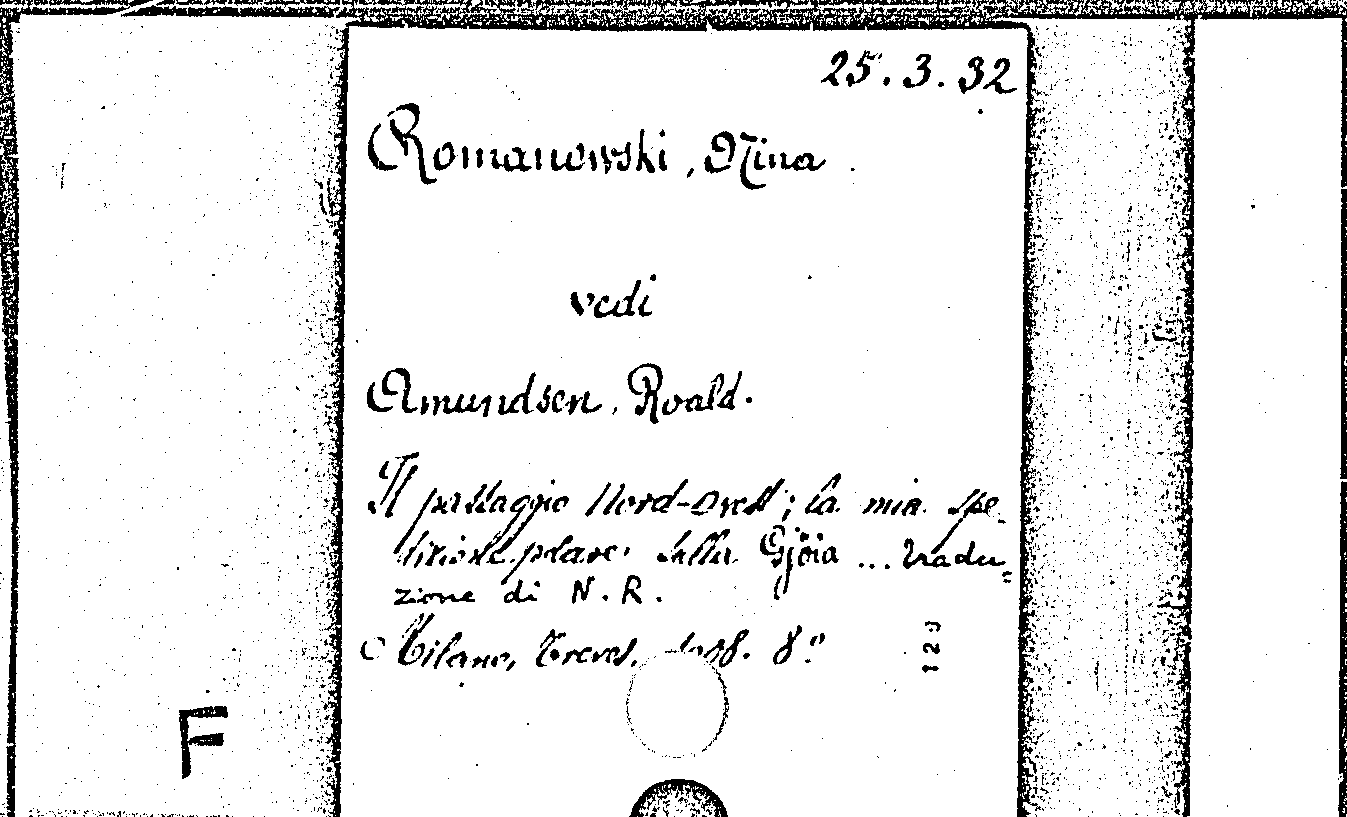 25.3.32
Romanowski, Nina.
vedi
Amundsen, Roald.
Il passaggio Nord-Ovest; la mia spe-
dizione polare sulla Gjöia ... tradu-
zione di N.R.
Milano, Treves, 8.°
123
F